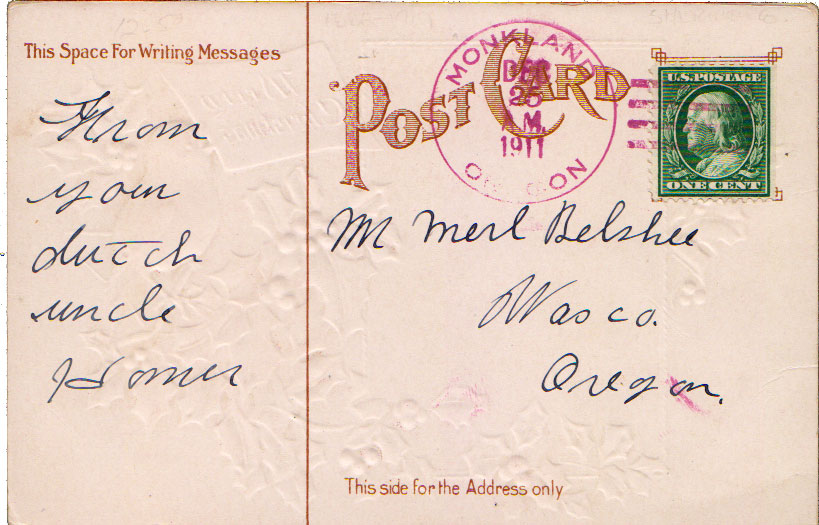 This Space For Writing Messages
POST CARD
MONKLAND
DEC
25
A.M.
1911
OREGON
U.S. POSTAGE
ONE CENT
From
your
dutch
uncle
Homer
M Merl Belshee
Wasco.
Oregon.
This side for the Address only